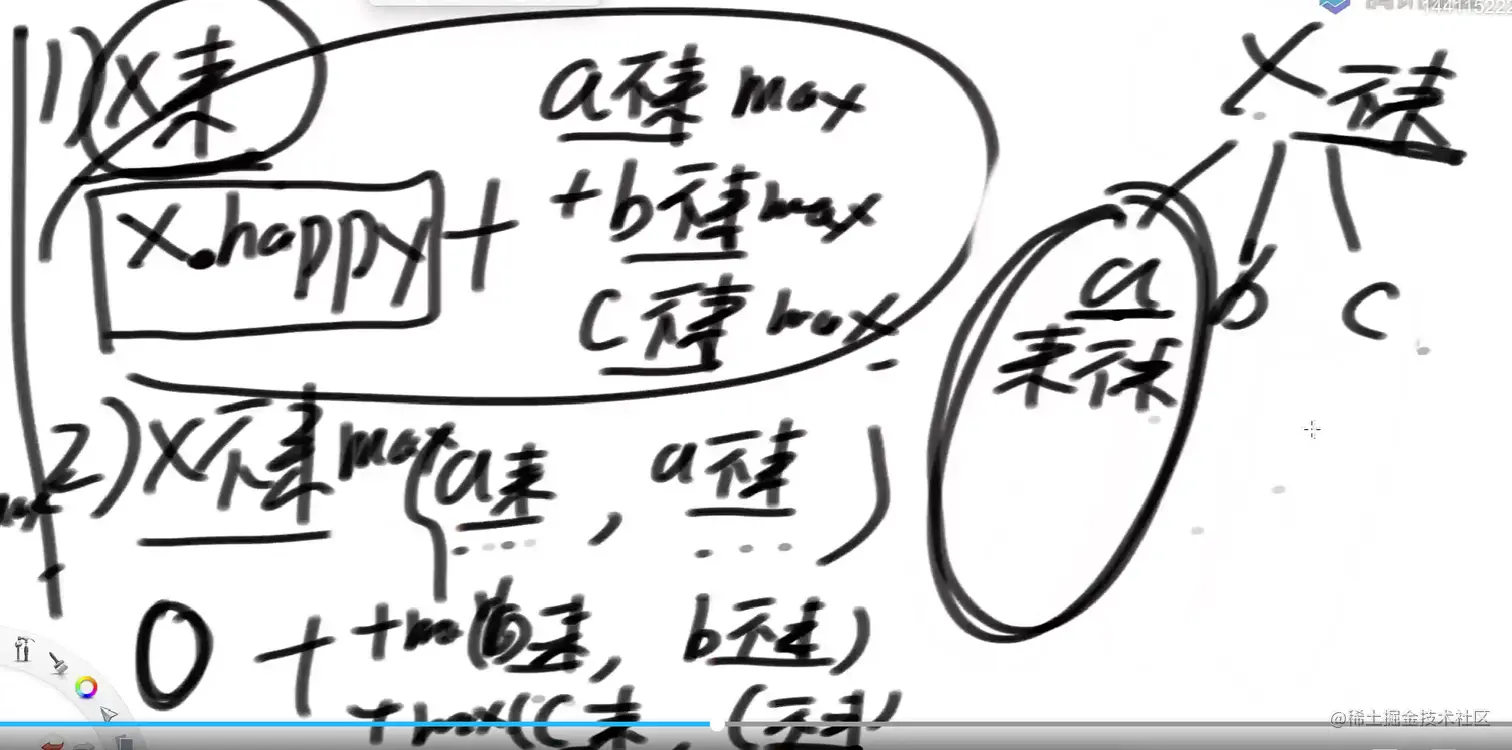 1) X来
a不来 max
X.happy + + b不来 max
c不来 max
2) X不来 max(a来, a不来)
0 + + max(b来, b不来)
+ max(c来, c不来)
X 不来
a b c
来不来
@稀土掘金技术社区